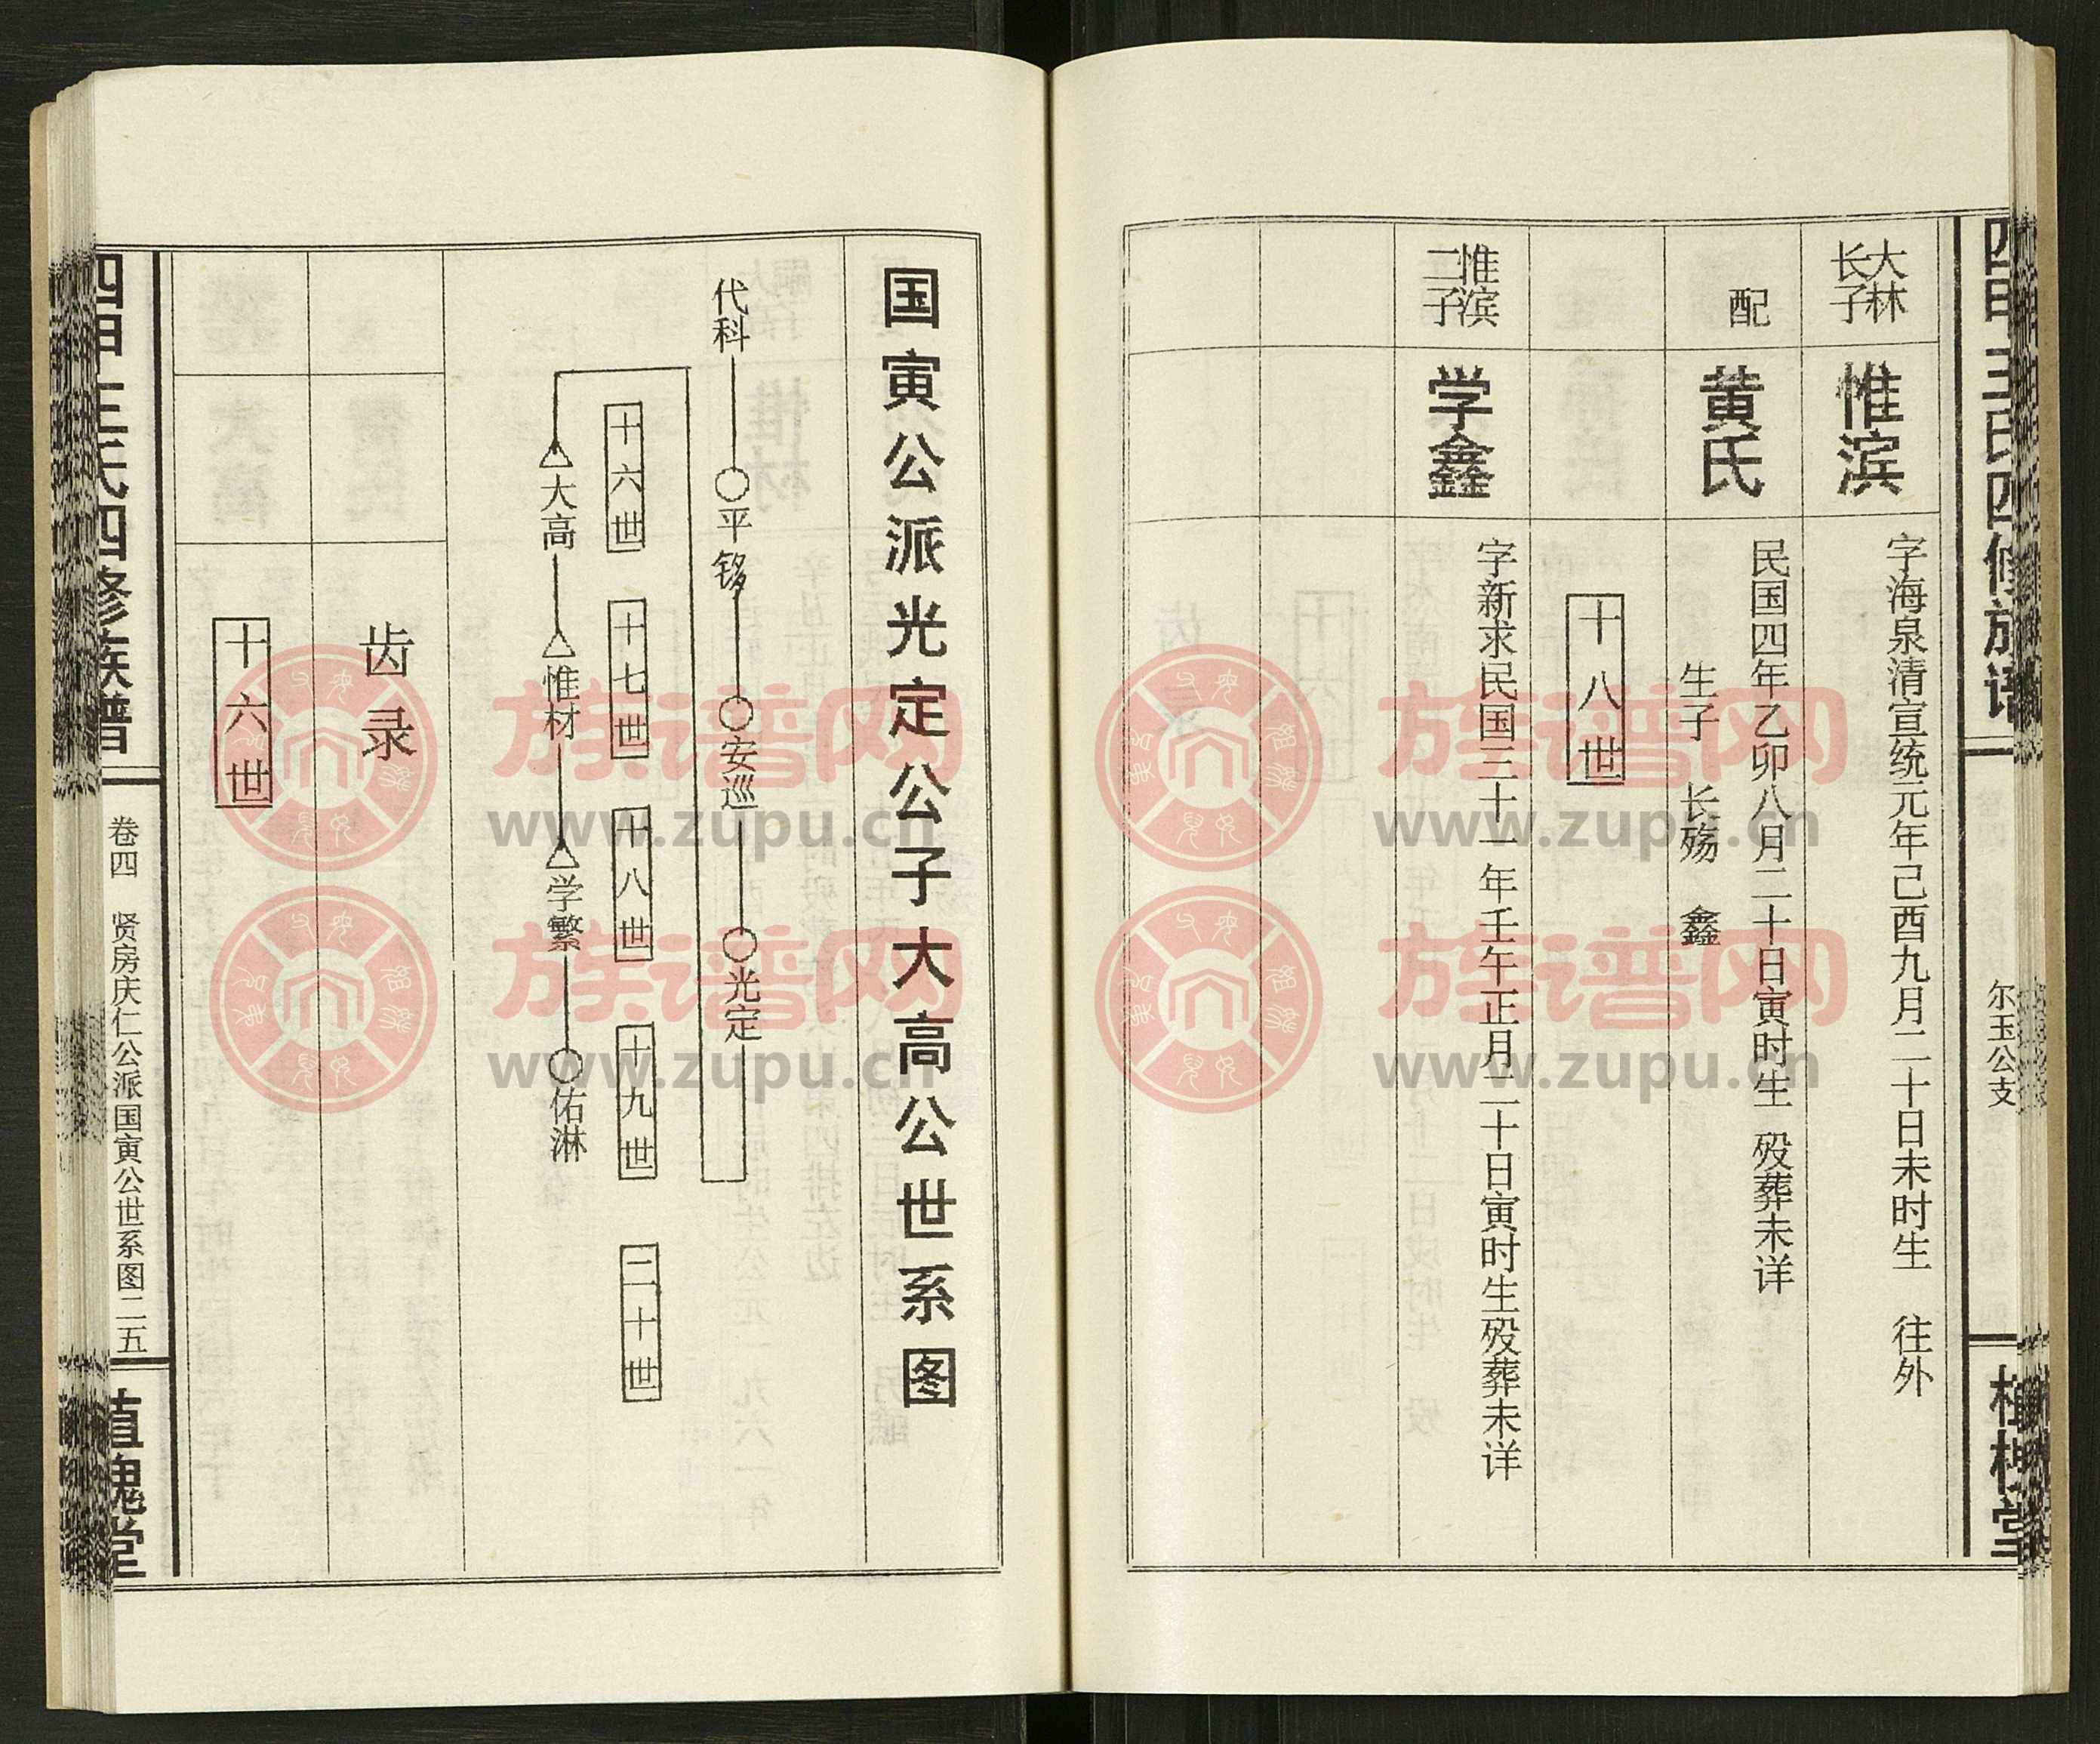 四甲王氏四修族谱
尔玉公支
植槐堂
大林
长子
惟滨
字海泉清宣统元年己酉九月二十日未时生 往外
配
黄氏
民国四年乙卯八月二十日寅时生 殁葬未详
生子 长殇 鑫
十八世
惟滨
二子
学鑫
字新求民国三十一年壬午正月二十日寅时生殁葬未详
国寅公派光定公子大高公世系图
代科
平
安巡
光定
十六世
十七世
十八世
十九世
二十世
大高
惟材
学繁
佑淋
齿录
十六世
四甲王氏四修族谱
卷四 贤房庆仁公派国寅公世系图二五
植槐堂
族谱网
www.zupu.cn
族谱网
www.zupu.cn
族谱网
www.zupu.cn
族谱网
www.zupu.cn